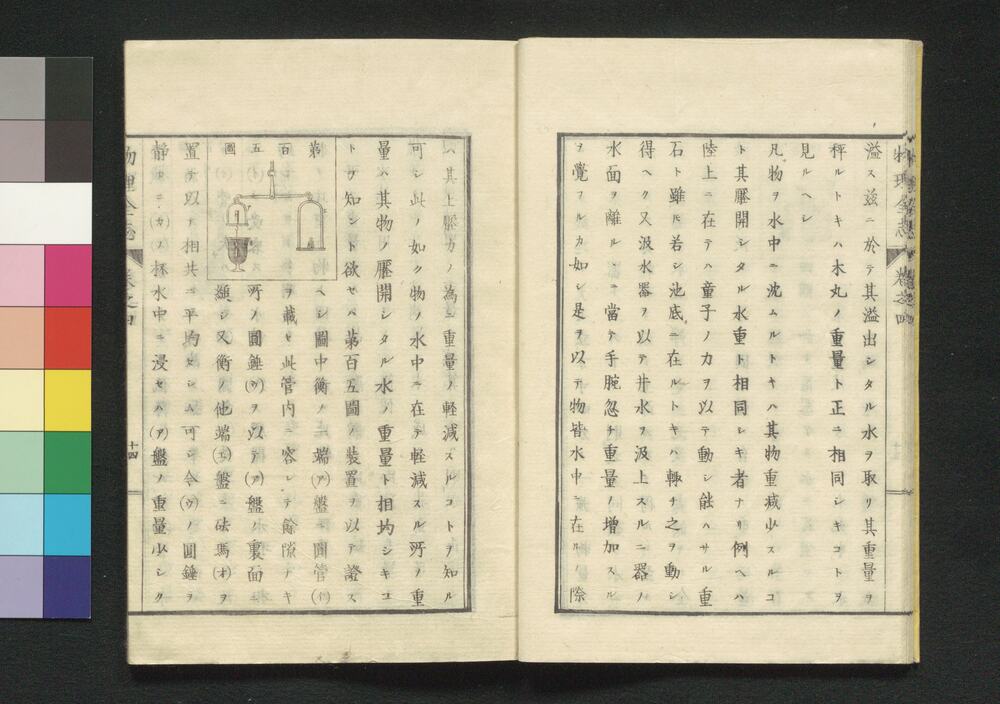 物理全志 卷之四
溢ス玆ニ於テ其溢出シタル水ヲ取リ其重量ヲ
秤ルトキハ木丸ノ重量ト正ニ相同シキコトヲ
見ルヘシ
凡物ヲ水中ニ沈ムルトキハ其物重減少スルコ
ト其壓開シタル水重ト相同シキ者ナリ例ヘハ
陸上ニ在テハ童子ノ力ヲ以テ動シ能ハサル重
石ト雖𪜈若シ池底ニ在ルトキハ轉チ之ヲ動シ
得ヘク又汲水器ヲ以テ井水ヲ汲上スルニ器ノ
水面ヲ離ルヽニ當テ手腕忽チ重量ノ増加スル
ヲ覺フルカ如シ是ヲ以テ物皆水中ニ在ルノ際
ハ其上壓力ノ為ニ重量ノ輕減スルコトヲ知ル
可シ此ノ如ク物ノ水中ニ在テ輕減スル所ノ重
量ハ其物ノ壓開シタル水ノ重量ト相均シキコ
トヲ知ント欲セバ第百五圖ノ装置ヲ以テ證ス
第百五圖
ヘシ圖中衡ノ一端(ア)盤ニ圓管(イ)
ヲ載セ此管内ニ容レテ餘隙ナキ
所ノ圓錘(ウ)ヲ以テ(ア)盤ノ裏面ニ
縋シ又衡ノ他端(エ)盤ニ砝馬(オ)ヲ
置テ以テ相共ニ平均セシム可シ今(ウ)ノ圓錘ヲ
静カニ(カ)ノ杯水中ニ浸セハ(ア)盤ノ重量少シク
物理全志 卷之四 十四